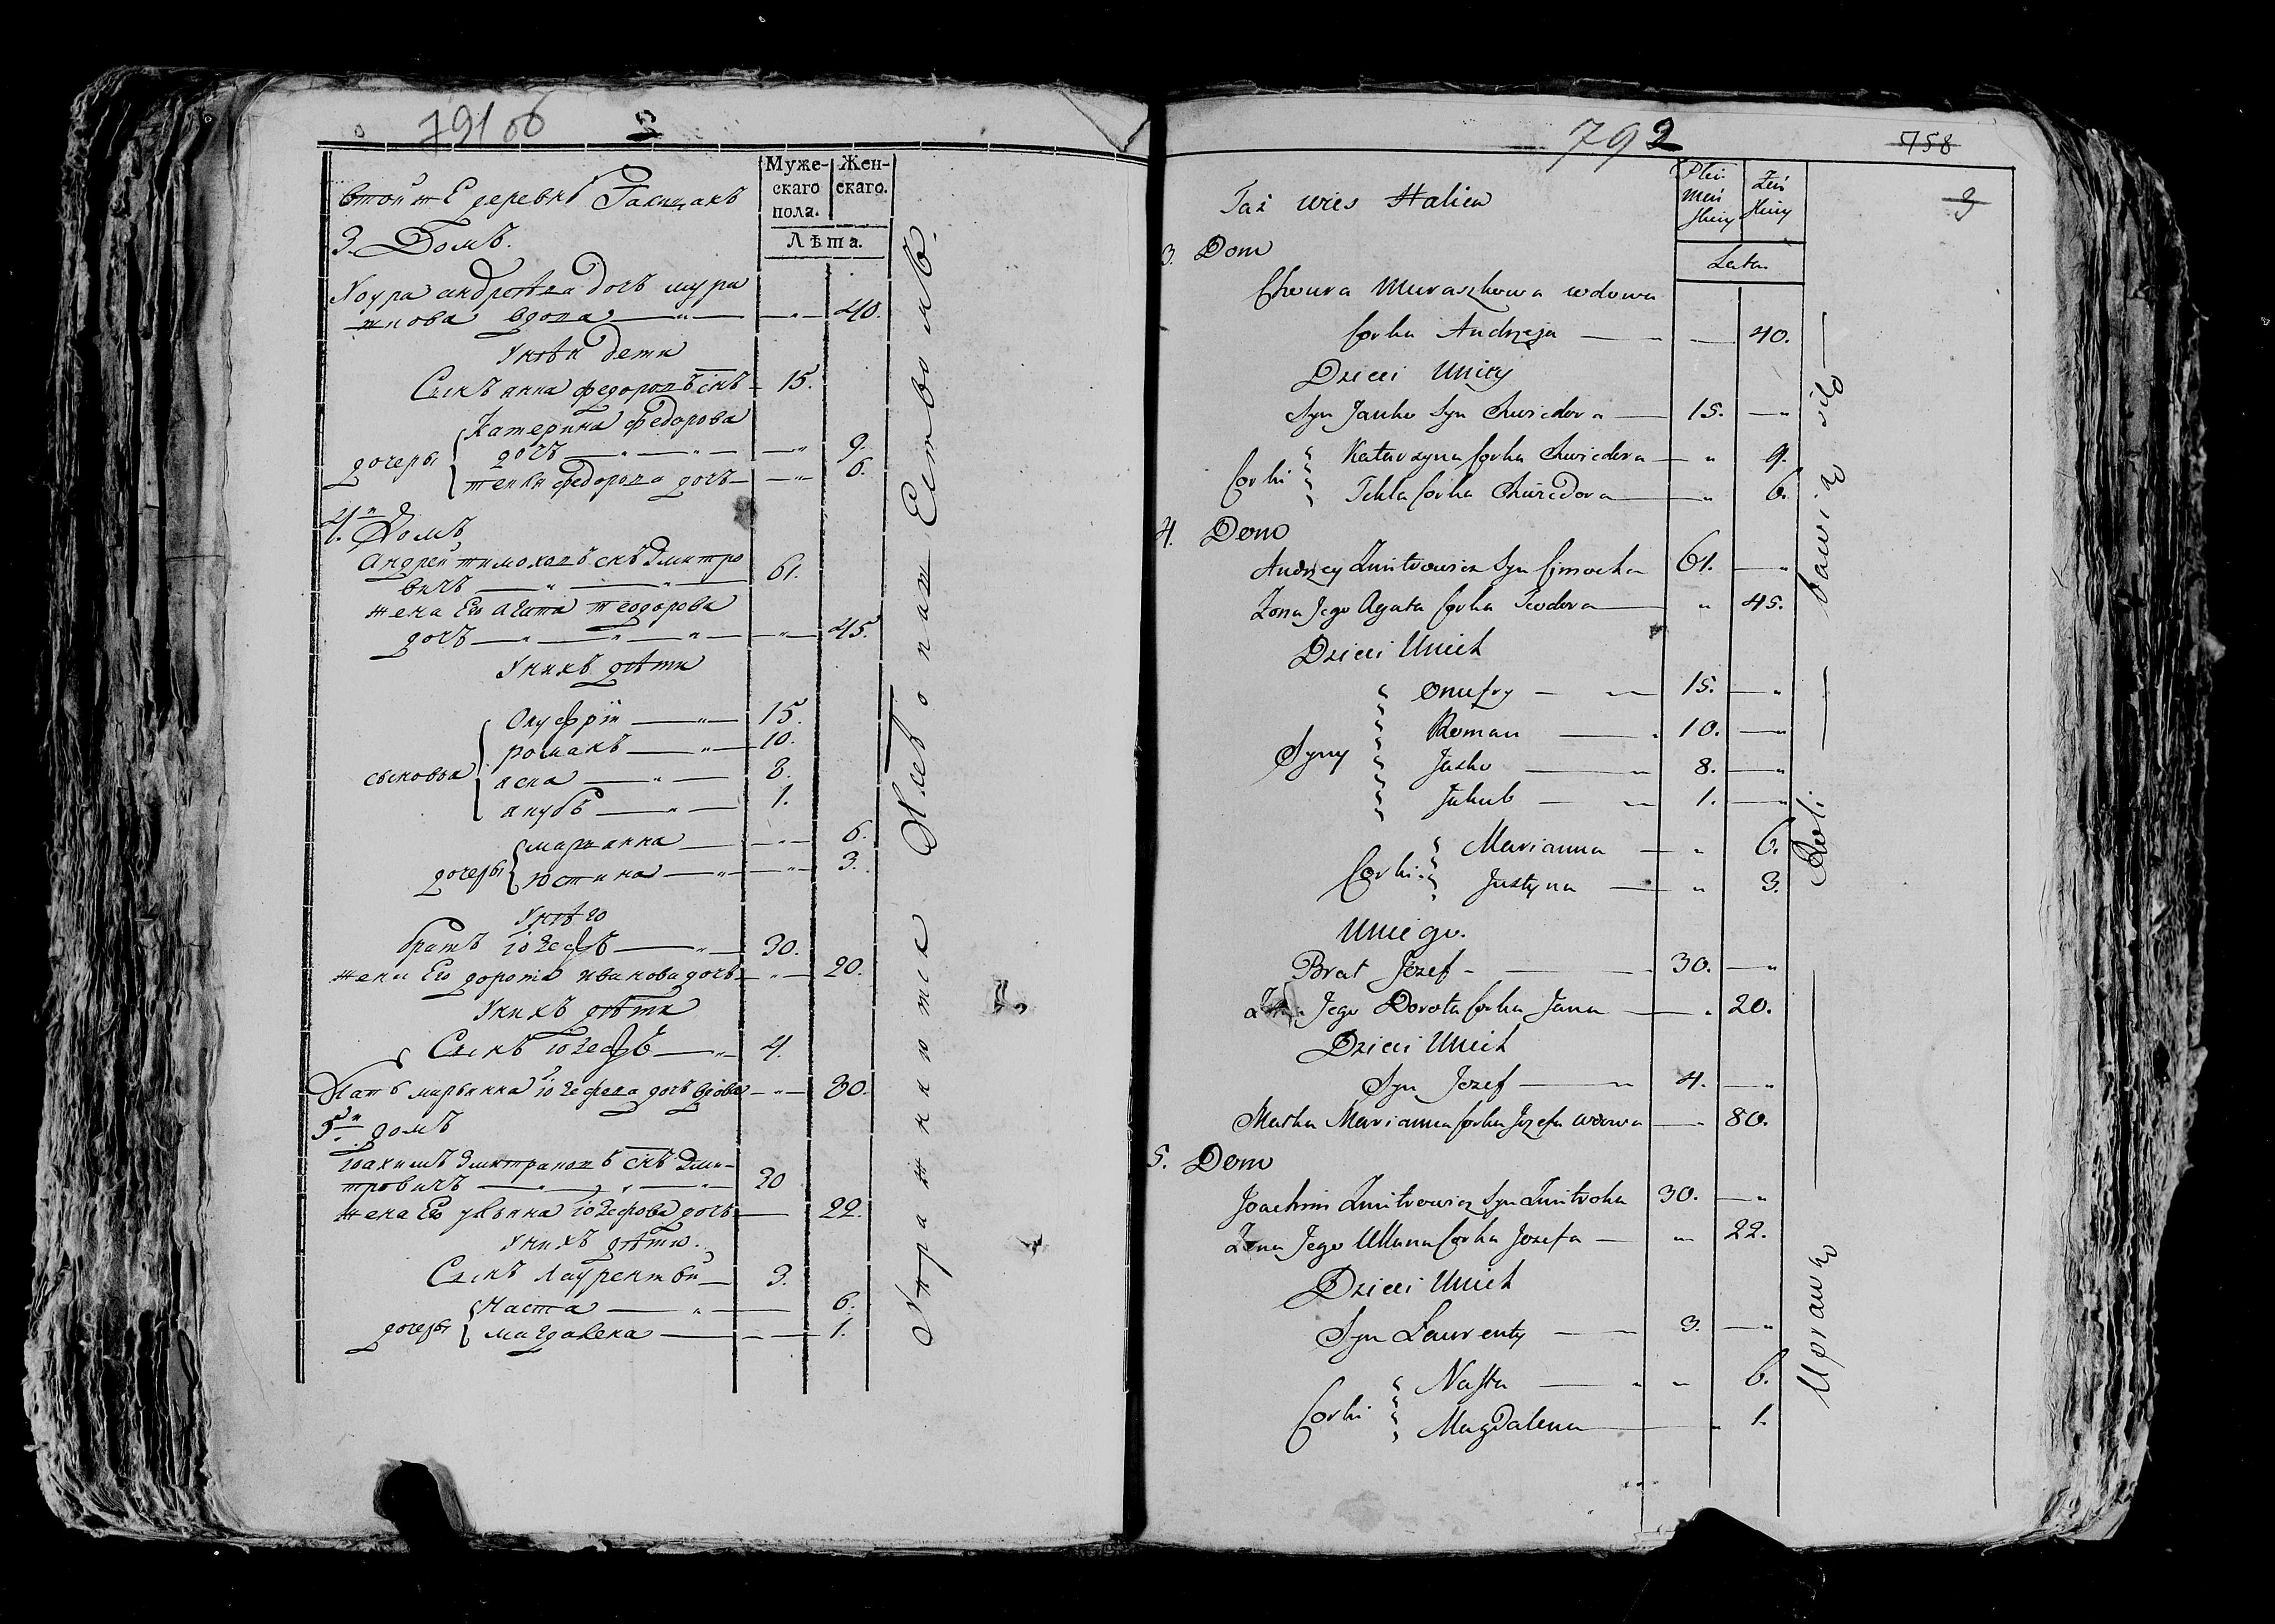 791 об
2
Муже-
скаго
пола.
Жен-
скаго.
Лѣта.
втой же деревнѣ
3. Домъ.
Хоура андреева дочъ мура
шкова вдова — 40.
Унѣй дети
Сынъ янка федоровъ снъ — 15.
Катерина федорова
дочеры
дочъ — 9.
текля федорова дочъ — 6.
4й Домъ
Андрей тимоховъ снъ Змитро
вичъ — 61.
жена Его агата теодорова
дочъ — 45.
Унихъ дѣти
сыновья
Онуфрій — 15.
романъ — 10.
яска — 8.
якубъ — 1.
дочеры
марьянна — 6.
юстина — 3.
Унѣго
братъ іозефъ — 30.
жена Его дорота иванова дочъ — 20.
Унихъ дѣти
Сынъ іозефъ — 4.
Мать марьянна іозефова дочъ вдова — 80.
5й домъ
іоахимъ Змитраковъ снъ Зми-
тровичъ — 30
жена Его ульяна іозефова дочъ — 22.
Унихъ дѣти.
Сынъ лаурентый — 3.
дочеры
Наста — 6.
магдалена — 1.
Упражняются Хлебопашествомъ.
792
758
3
Taż wies Halica
Płci
Męs
kiey
Żeń
skiey
Lata
3. Dom
Chwura Muraszkowa wdowa
Corka Andrzeja — 40.
Dzieci Uniey
Syn Janko Syn Chwiedora — 15.
Corki
Katarzyna Corka Chwiedora — 9.
Tekla Corka Chwiedora — 6.
4. Dom
Andrzey Zmitrowicz Syn Cimocha 61.
Zona Jego Agata Corka Teodora — 45.
Dzieci Unich
Syny
Onufry — 15.
Roman — 10.
Jasko — 8.
Jakub — 1.
Corki
Marianna — 6.
Justyna — 3.
Uniego.
Brat Jozef — 30.
Zona Jego Dorota Corka Jana — 20.
Dzieci Unich
Syn Jozef — 4.
Matka Marianna Corka Jozefa wdowa — 80.
5. Dom
Joachim Zmitrowicz Syn Zmitroka 30.
Zona Jego Ullana Corka Jozefa — 22.
Dzieci Unich
Syn Laurenty — 3.
Corki
Nasta — 6.
Magdalena — 1.
Uprawą Roli bawią się